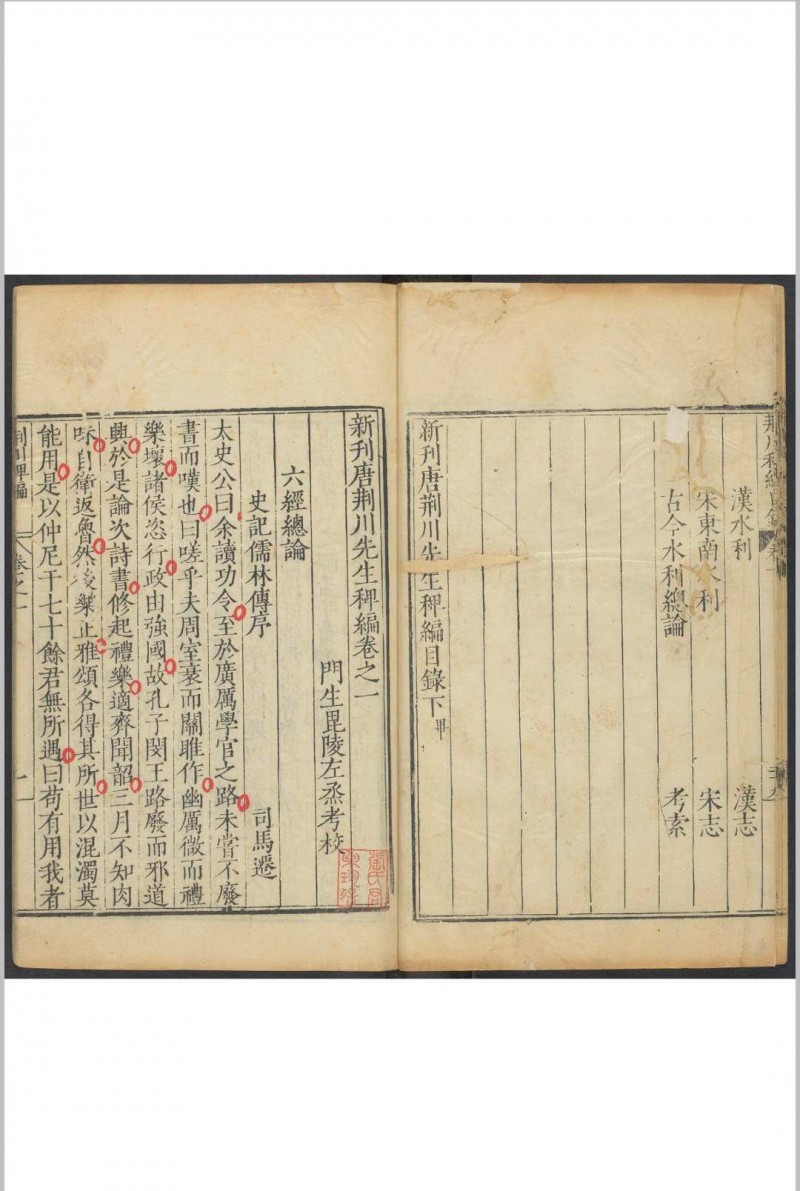 漢水利 漢志
宋東南水利 宋志
古今水利總論 考索
新刊唐荆川先生稗編目錄下畢
新刊唐荆川先生稗編卷之一
門生毘陵左烝考校
六經總論
史記儒林傳序 司馬遷
太史公曰余讀功令至於廣厲學官之路未嘗不廢
書而嘆也曰嗟乎夫周室衰而關雎作幽厲微而禮
樂壞諸侯恣行政由強國故孔子閔王路廢而邪道
興於是論次詩書修起禮樂適齊聞韶三月不知肉
味自衛返魯然後樂正雅頌各得其所世以混濁莫
能用是以仲尼干七十餘君無所遇曰苟有用我者